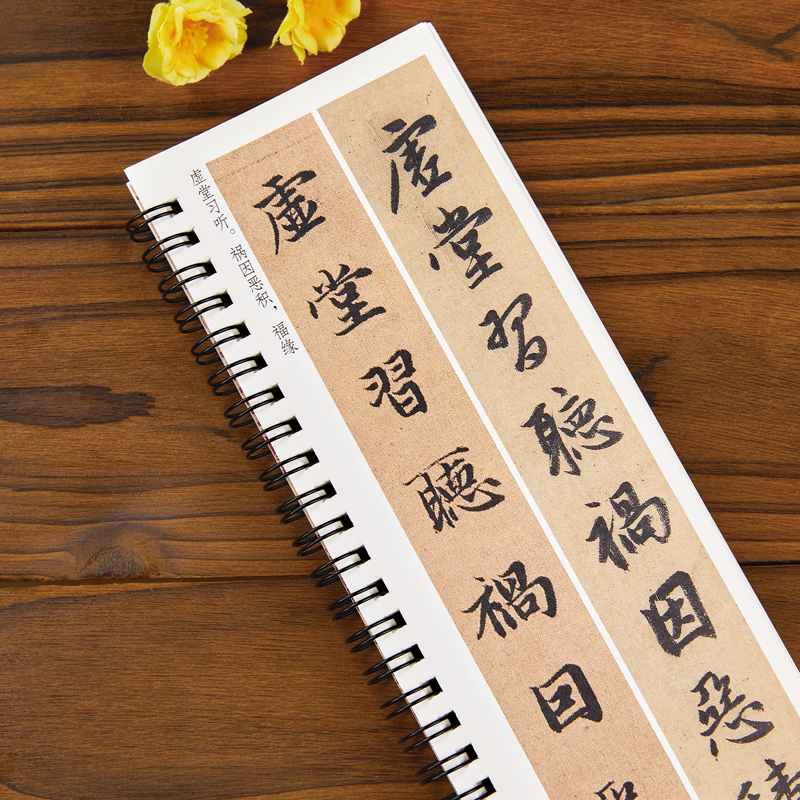 虛堂習聽禍因惡
虛堂習聽禍因
虚堂习听。祸因恶积，福缘